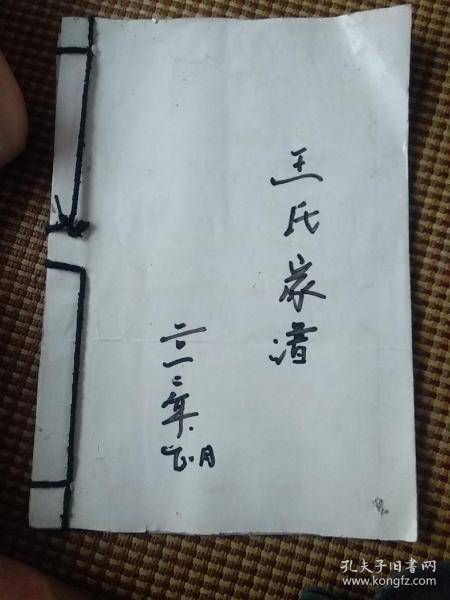 王氏家谱
二〇一二年
月
孔夫子旧书网
www.kongfz.com